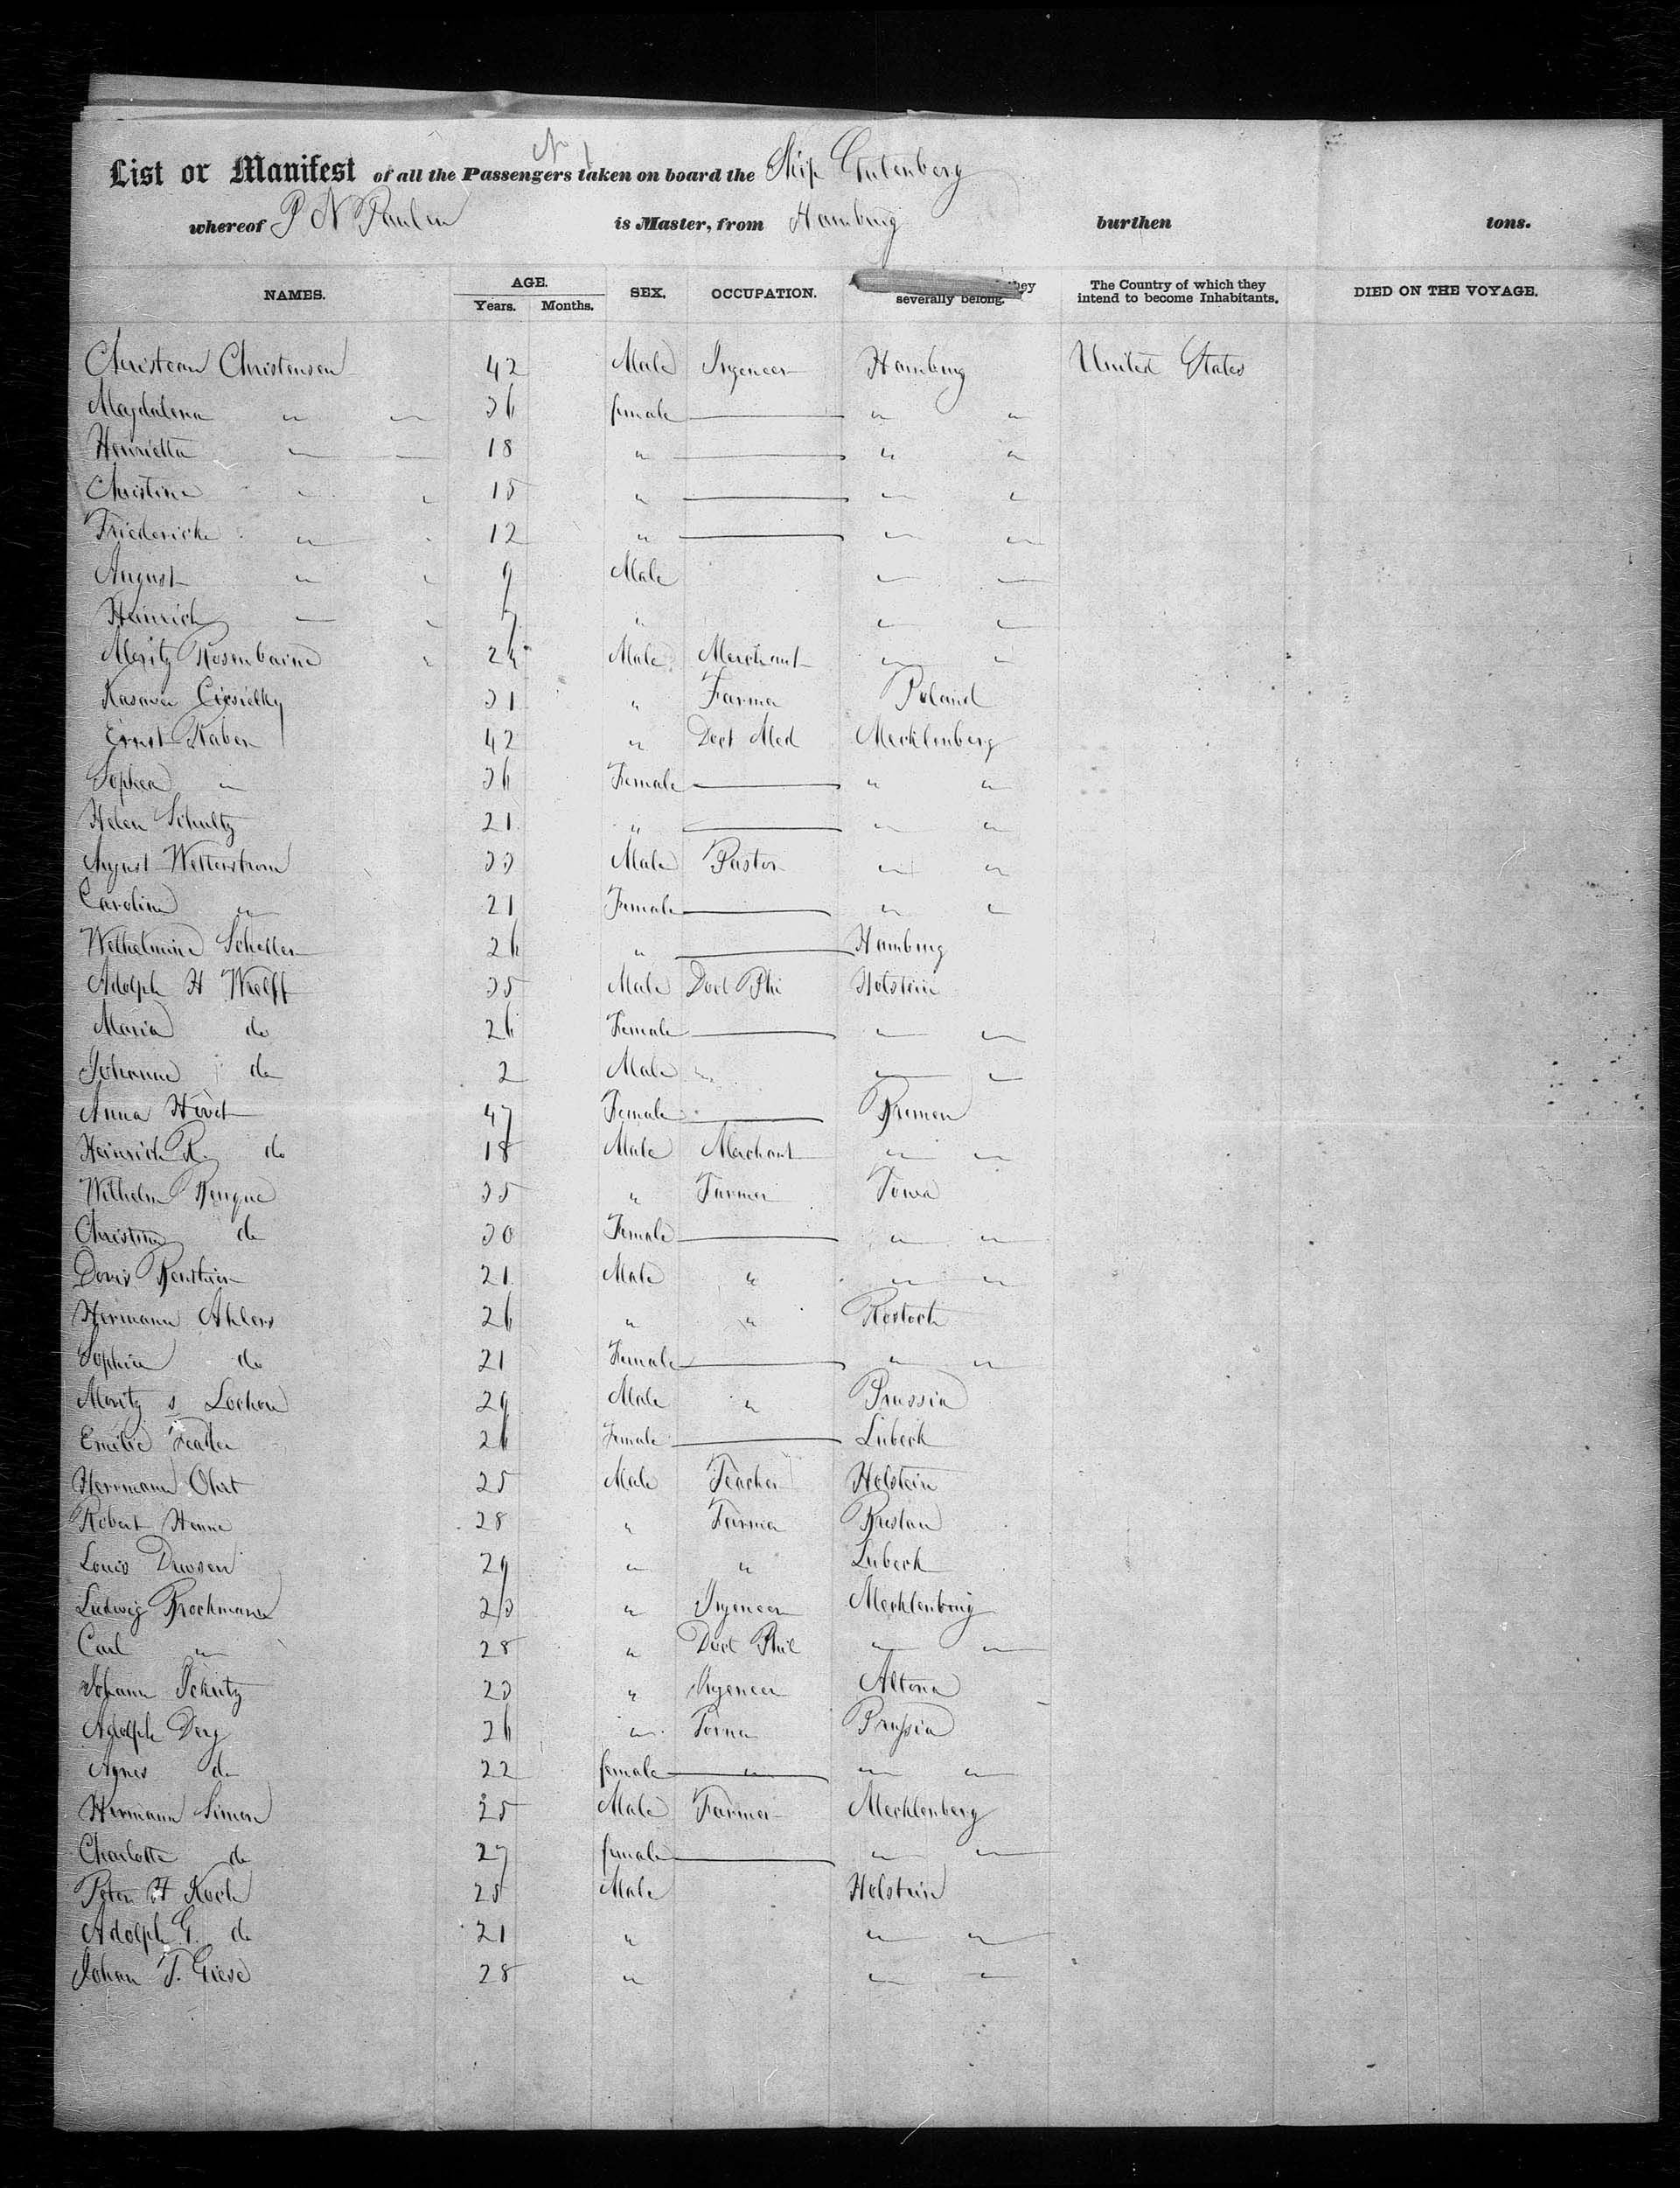 No 1
List or Manifest of all the Passengers taken on board the Ship Gutenberg
whereof P N Paulsen is Master, from Hamburg burthen tons.
NAMES. AGE. Years. Months. SEX. OCCUPATION. they severally belong. The Country of which they intend to become Inhabitants. DIED ON THE VOYAGE.
Christean Christensen 42 Male Ingeneer Hamburg United States
Magdalena " " 36 female " "
Henrietta " " 18 " " "
Christine " " 15 " " "
Friedericke " " 12 " " "
August " " 9 Male " "
Heinrich " " 7 " " "
Moritz Rosenbaine 24 Male Merchant " "
Ciesielky 31 " Farmer Poland
Ernst Raben 42 " Doct Med Mecklenberg
Sophia " 36 Female " "
Helen Schultz 21 " " "
August Wetterstrom 33 Male Pastor " "
Caroline " 21 Female " "
Wilhelmine Scheller 26 " Hamburg
Adolph H Wulff 35 Male Doct Phi Holstein
Maria do 26 Female " "
Johanne do 2 Male " " "
Anna 47 Female Bremen
Heinrich R. do 18 Male Merchant " "
Wilhelm 35 " Farmer Iowa
Christine do 30 Female " "
21 Male " " "
Hermann Ahlers 26 " " Rostock
Sophia do 21 Female " "
Moritz s Lochow 29 Male " Prussia
Emilie 26 Female Lübeck
Herrmann Olert 25 Male Teacher Holstein
Robert Henne 28 " Farmer Breslau
Louis Dawsen 29 " " Lubeck
Ludwig Brockmann 23 " Ingeneer Mecklenburg
Carl " 28 " Doct Phil " "
Johann Schutz 23 " Ingeneer Altona
Adolph Dey 26 " Farmer Prussia
Agnes do 22 female " " "
Hermann Simon 25 Male Farmer Mecklenberg
Charlotte do 27 female " "
Peter H Koch 25 Male Holstein
Adolph G. do 21 " " "
Johan T. Giese 28 " " "